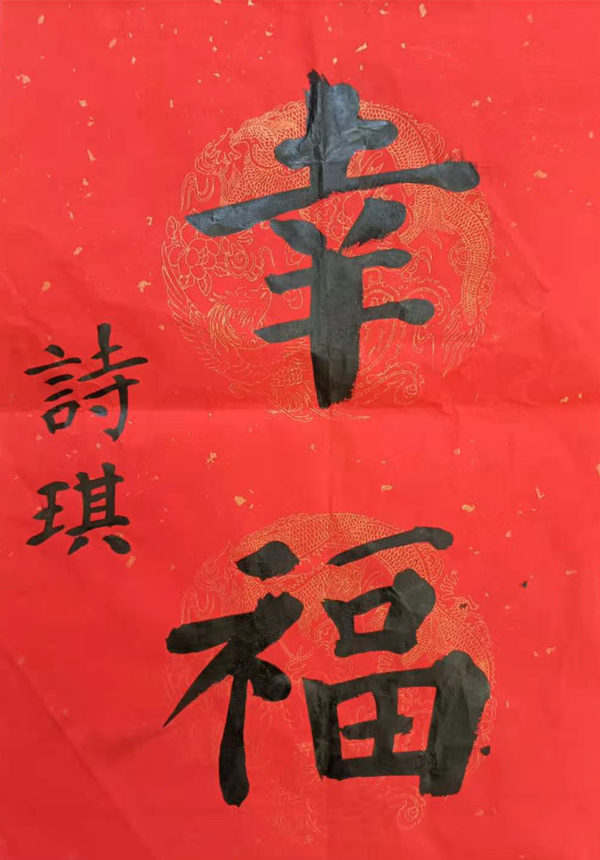 幸福
詩琪